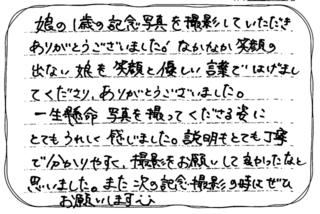 娘の1歳の記念写真を撮影していただき
ありがとうございました。なかなか笑顔の
出ない娘を笑顔と優しい言葉ではげまし
てくださり、ありがとうございました。
一生懸命 写真を撮ってくださる姿に
とてもうれしく感じました。説明もとても丁寧
で分かりやすく、撮影をお願いして良かったなと
思いました。また次の記念撮影の時はぜひ
お願いします